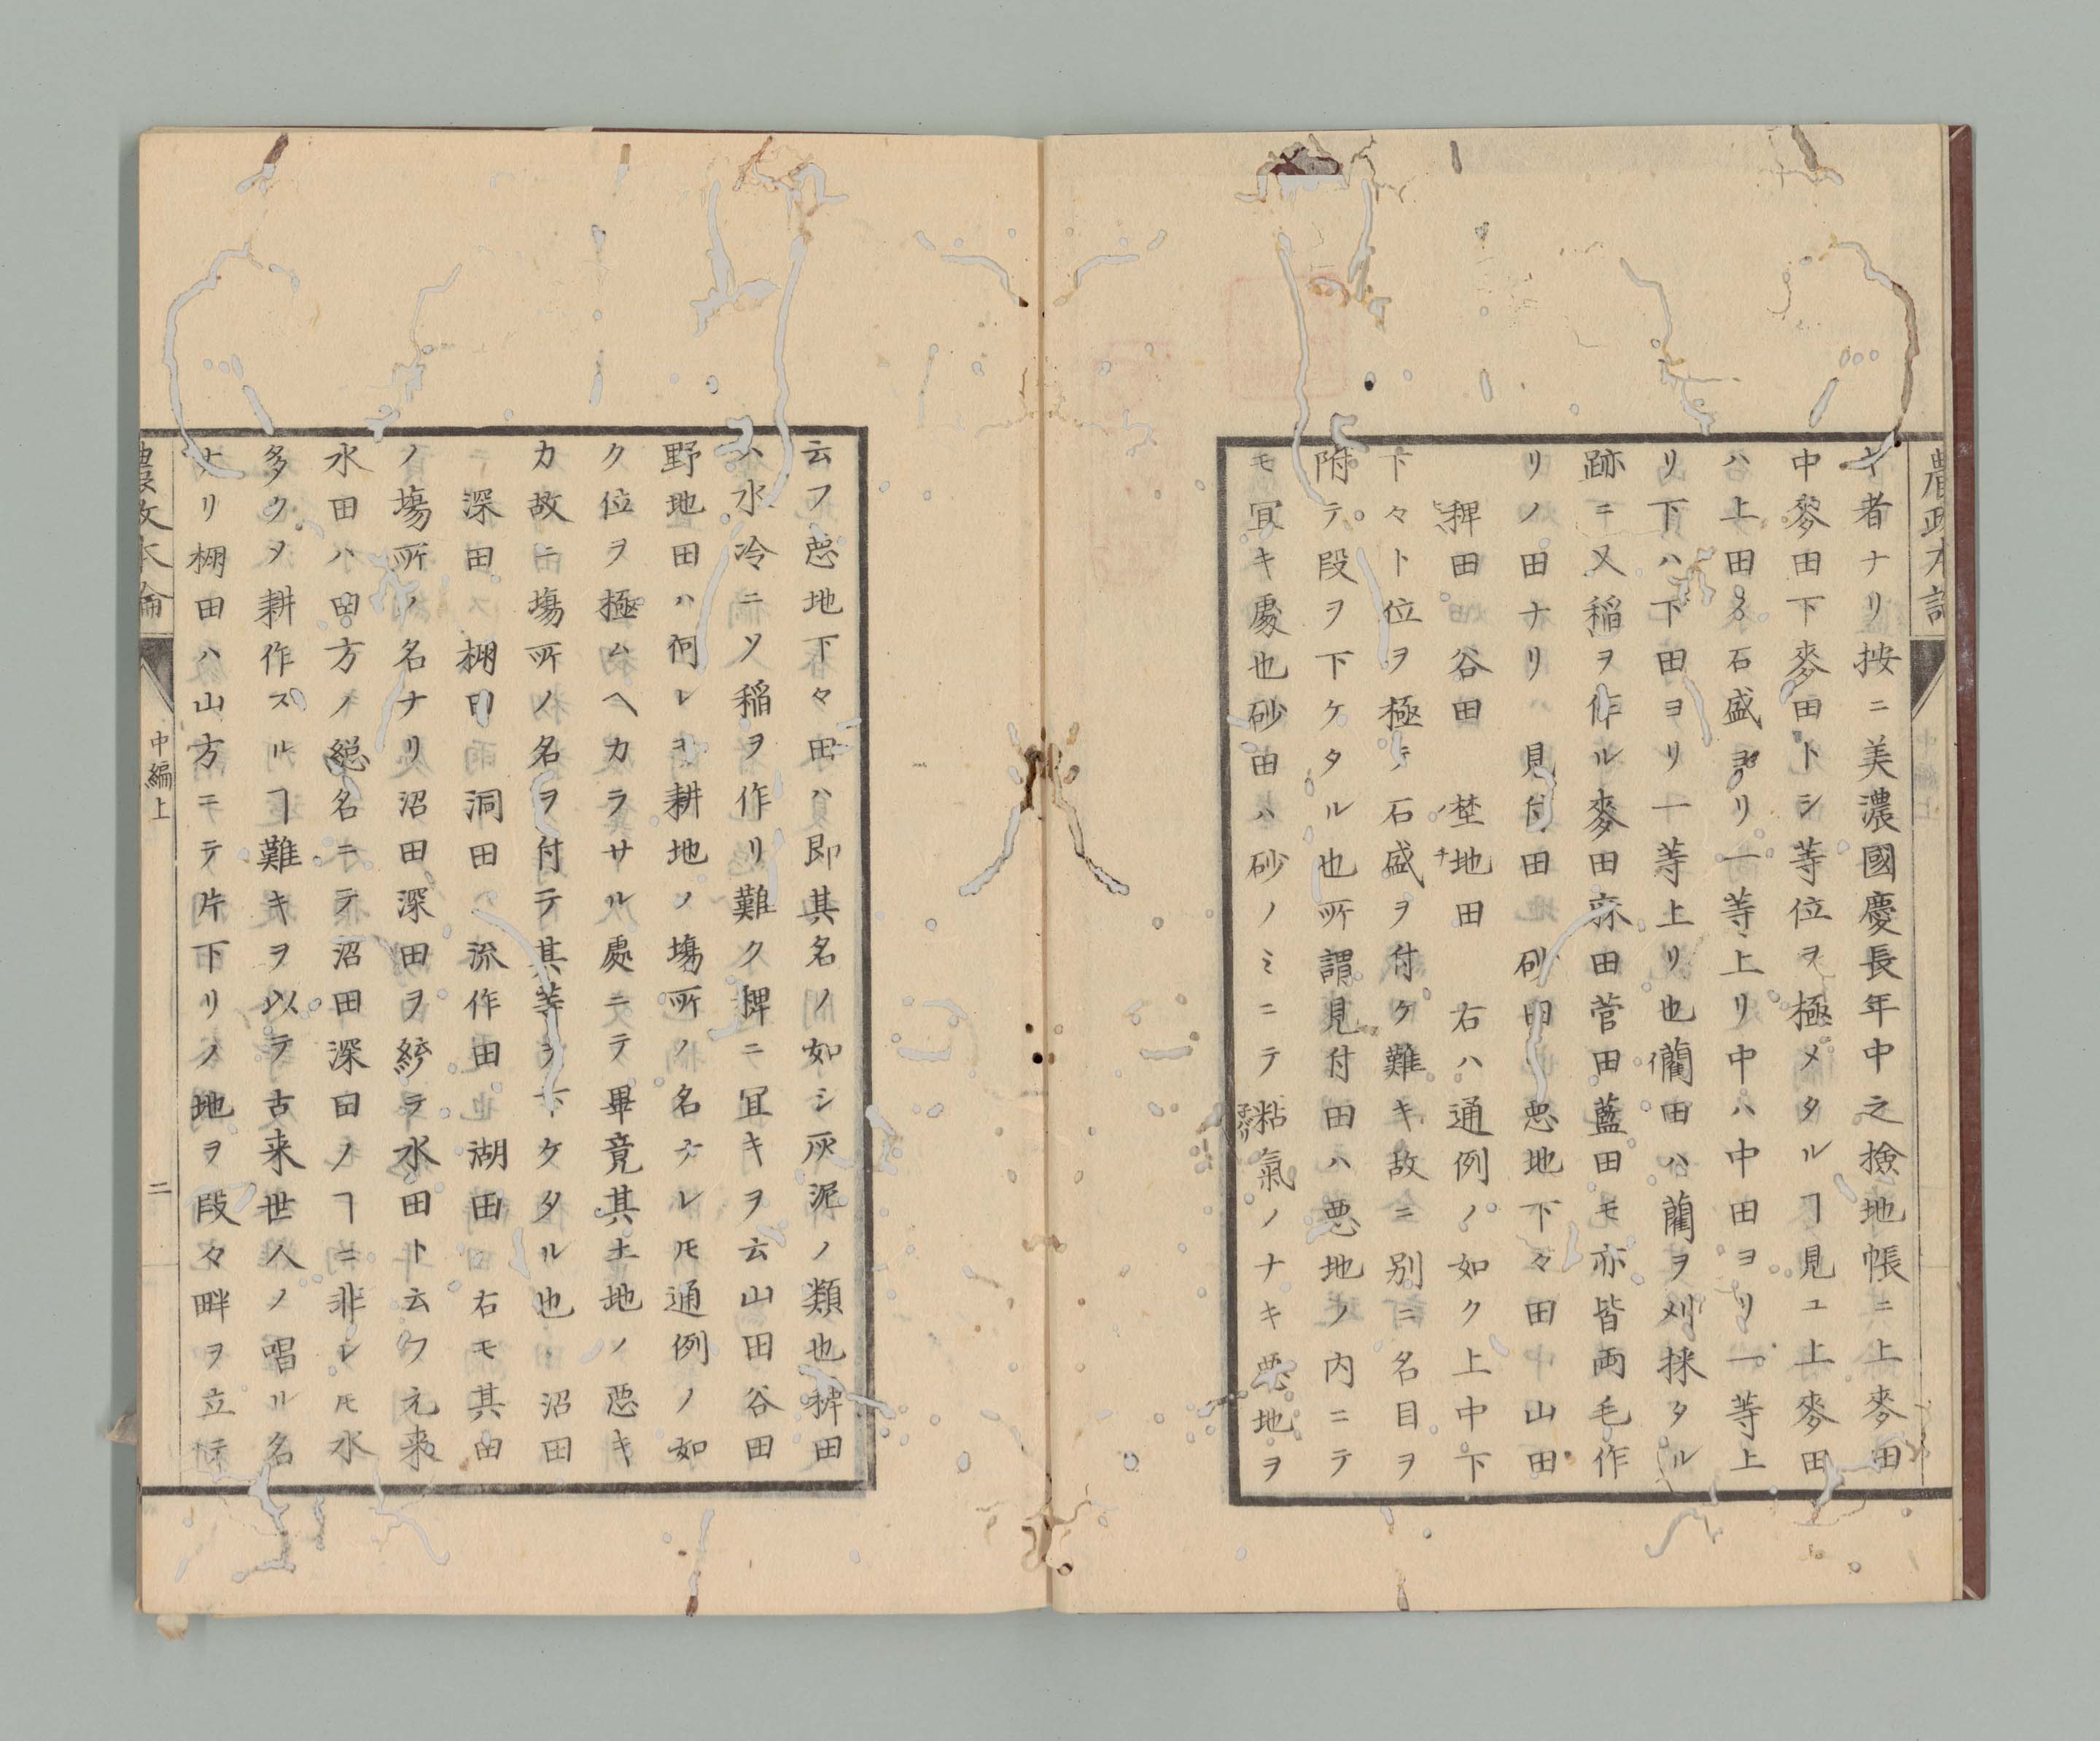 キ者ナリ按ニ美濃國慶長年中之撿地帳ニ上麥田
中麥田下麥田トシ等位ヲ極メタルヿ見ユ上麥田
ハ上田ヨリ石盛ヨリ一等上リ中ハ中田ヨリ一等上
リ下ハ下田ヨリ一等上リ也藺田ハ藺ヲ刈採タル
跡ニ又稲ヲ作ル麥田麻田菅田藍田モ亦皆両毛作
リノ田ナリ 見付田 砂田 悪地下々田 山田
稗田 谷田 埜地田 右ハ通例ノ如ク上中下
下々ト位ヲ極テ石盛ヲ付ケ難キ故ニ別ニ名目ヲ
附テ段ヲ下ケタル也所謂見付田ハ悪地ノ内ニテ
モ冝キ處也砂田ハ砂ノミニテ粘氣ノナキ悪地ヲ
云フ悪地下々田ハ即其名ノ如シ灰泥ノ類也稗田
ハ水冷ニソ稲ヲ作リ難ク稗ニ冝キヲ云山田谷田
野地田ハ何レモ耕地ノ塲所ノ名ナレ𪜈通例ノ如
ク位ヲ極ムヘカラサル處ニテ畢竟其土地ノ悪キ
カ故ニ塲所ノ名ヲ付テ其等ヲ下ケタル也 沼田
深田 棚田 洞田 流作田 湖田 右モ其田
ノ塲所ノ名ナリ沼田深田ヲ統テ水田ト云フ元来
水田ハ田方ノ総名ニテ沼田深田ノヿニ非レ𪜈水
多クソ耕作スルヿ難キヲ以テ古来世人ノ唱ル名
ナリ棚田ハ山方ニテ片下リノ地ヲ段々畔ヲ立テ
農政本論
中編上
二